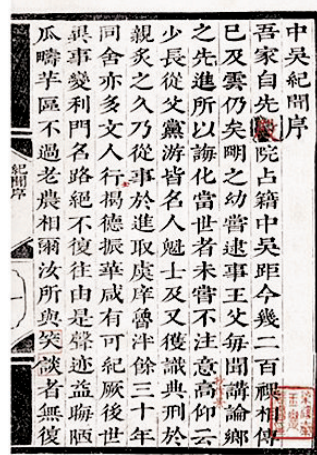 中吳紀聞序
吾家自先殿院占籍中吳距今幾二百禩相傳
已及雲仍矣明之幼嘗逮事王父每聞講論鄉
之先進所以誨化當世者未嘗不注意高仰云
少長從父黨游皆名人魁士及又獲識典刑於
親炙之久乃從事於進取虞庠魯泮餘三十年
同舍亦多文人行揭德振華咸有可紀厥後世
異事變利門名路絕不復往由是聲迹益晦陋
瓜疇芋區不過老農相爾汝所與笑談者無復
紀聞序
一